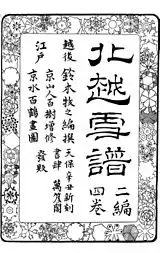 北越雪譜
二編
四巻
越後
鈴木牧之編撰
江戸
京山人百樹増修
京水百鶴畫圖
天保辛丑新刻
書肆
萬笈閣
發販